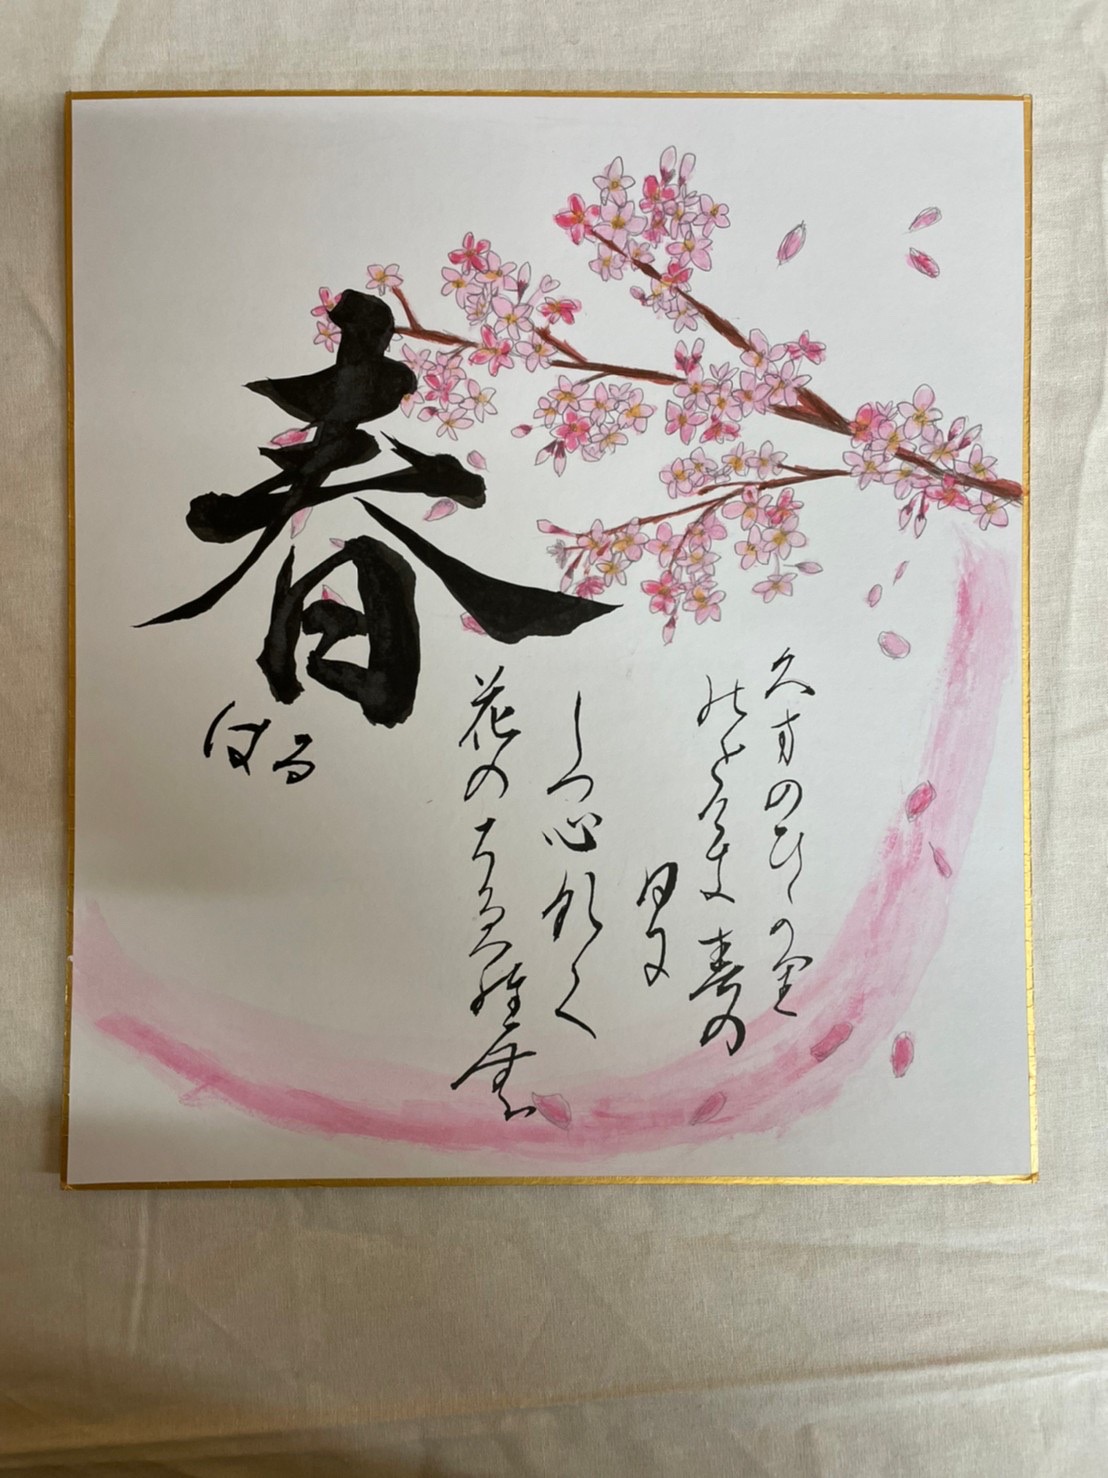 春
はる
久方のひかり
能とけき春の
日に
しつ心那く
花のちるらむ